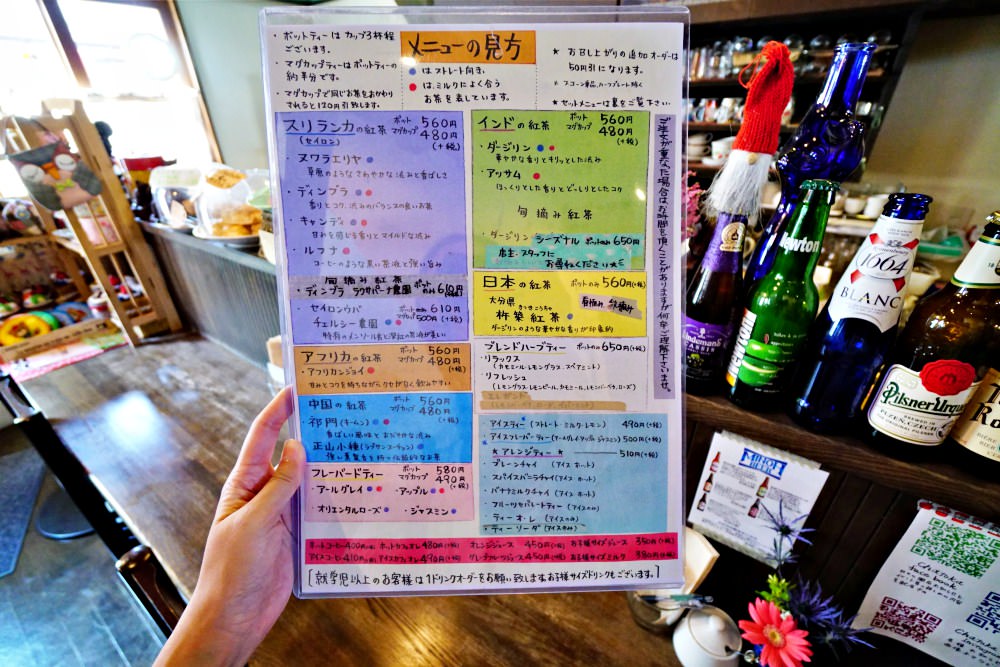 メニューの見方
・ポットティーはカップ3杯程
ございます。
・マグカップティーはポットティーの
約半分です。
・マグカップで同じお茶をおかわり
されると120円引致します。
● はストレート向き、
● は、ミルクによく合う
お茶を表しています。
★ お召し上がりの追加オーダーは
50円引になります。
★セットメニューは裏をご覧下さい
スリランカの紅茶
(セイロン)
ポット 560円
マグカップ 480円
(+税)
・ヌワラエリヤ
草原のようなさわやかな渋みと香ばしさ
・ディンブラ
香りとコク、渋みのバランスの良いお茶
・キャンディ
甘みを感じる香りとマイルドな渋み
・ルフナ
コーヒーのような黒い茶液と強い旨み
旬摘み紅茶
・ディンブラ ラクサパーナ農園 ポットのみ 610円
・セイロンウバ
チェルシー農園
ポットのみ 610円
マグカップ 500円(+税)
アフリカの紅茶
ポット 560円
マグカップ 480円
(+税)
・アフリカンジョイ
甘みとコクを持ちながらクセがなく飲みやすい
中国の紅茶
ポット 560円
マグカップ 480円
(+税)
・祁門(キームン)
香ばしい風味とおだやかな渋み
・正山小種(ラプサンスーチョン)
強い薫香を持つ伝統的なお茶
フレーバードティー
ポット 580円
マグカップ 490円
(+税)
・アールグレイ ・アップル
・オリエンタルローズ ・ジャスミン
インドの紅茶
ポット 560円
マグカップ 480円
(+税)
・ダージリン
華やかな香りとキリッとした渋み
・アッサム
ほっくりとした香りとどっしりとしたコク
旬摘み紅茶
・ダージリン シーズナル ポットのみ 650円
店主、スタッフに
お尋ねください
日本の紅茶 ポットのみ 560円(+税)
大分県
杵築紅茶
ダージリンのような華やかな香りが印象的
ブレンドハーブティー ポットのみ 650円(+税)
・リラックス
(カモミール、レモングラス、スペアミント)
・リフレッシュ
アイスティー (ストレート・ミルク・レモン) 490円(+税)
アイスフレーバーティー(アールグレイ・アップル・ジャスミン) 500円(+税)
★アレンジティー★ 510円(+税)
・プレーンチャイ (アイス ホット)
・スパイスバニラチャイ(アイス ホット)
・バナナミルクチャイ (アイス ホット)
・フルーツセパレートティー (アイスのみ)
・ティー・オ・レ (アイスのみ)
・ティーソーダ (アイスのみ)
ご注文が重なった場合はお時間を頂くことがありますが何卒ご理解下さいませ。
ホットコーヒー 400円(+税) ホットカフェオレ 480円(+税) オレンジジュース 450円(+税) お子様サイズジュース 350円(+税)
アイスコーヒー 410円(+税) アイスカフェオレ 490円(+税) グレープフルーツジュース 450円(+税) お子様サイズミルク 380円(+税)
[就学児以上のお客様は1ドリンクオーダーをお願い致します。お子様サイズドリンクもございます。]
Lindemans
CASSIS
Newton
1664
BLANC
Pilsner Urquell
PLZEN, CZECH
MINOH
BEER